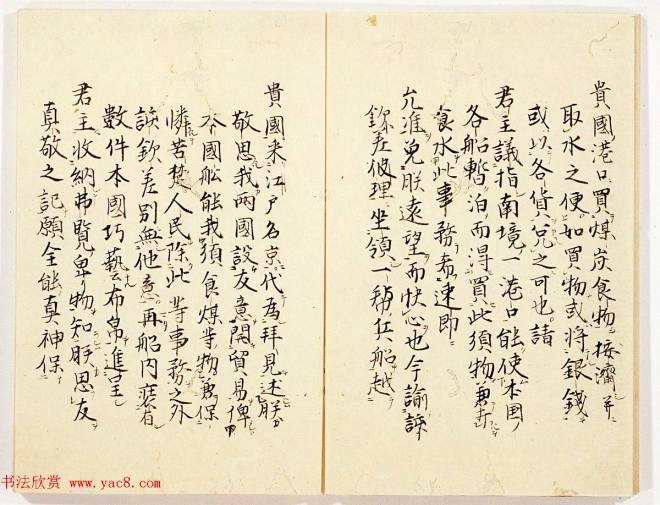 貴國港口買煤炭食物接濟並
取水之便如買物或將銀錢
或以各貨兌之可也諸
君主議指南境一港口能使本国
各船暫泊而得買此須物兼
食水此事務者速即
允准免朕遠望而快心也今諭該
欽差彼理坐領一幫兵船越
貴國来江戸名京代為拜見述朕
敬思我兩國設友意開貿易俾
本國船能我須食煤等物兼保
憐苦楚人民除此等事務之外
該欽差別無他意再船内載有
數件本國巧藝布帛進呈
君主收納弗覽卑物知朕思友
真敬之記願全能真神保
书法欣赏 www.yac8.com